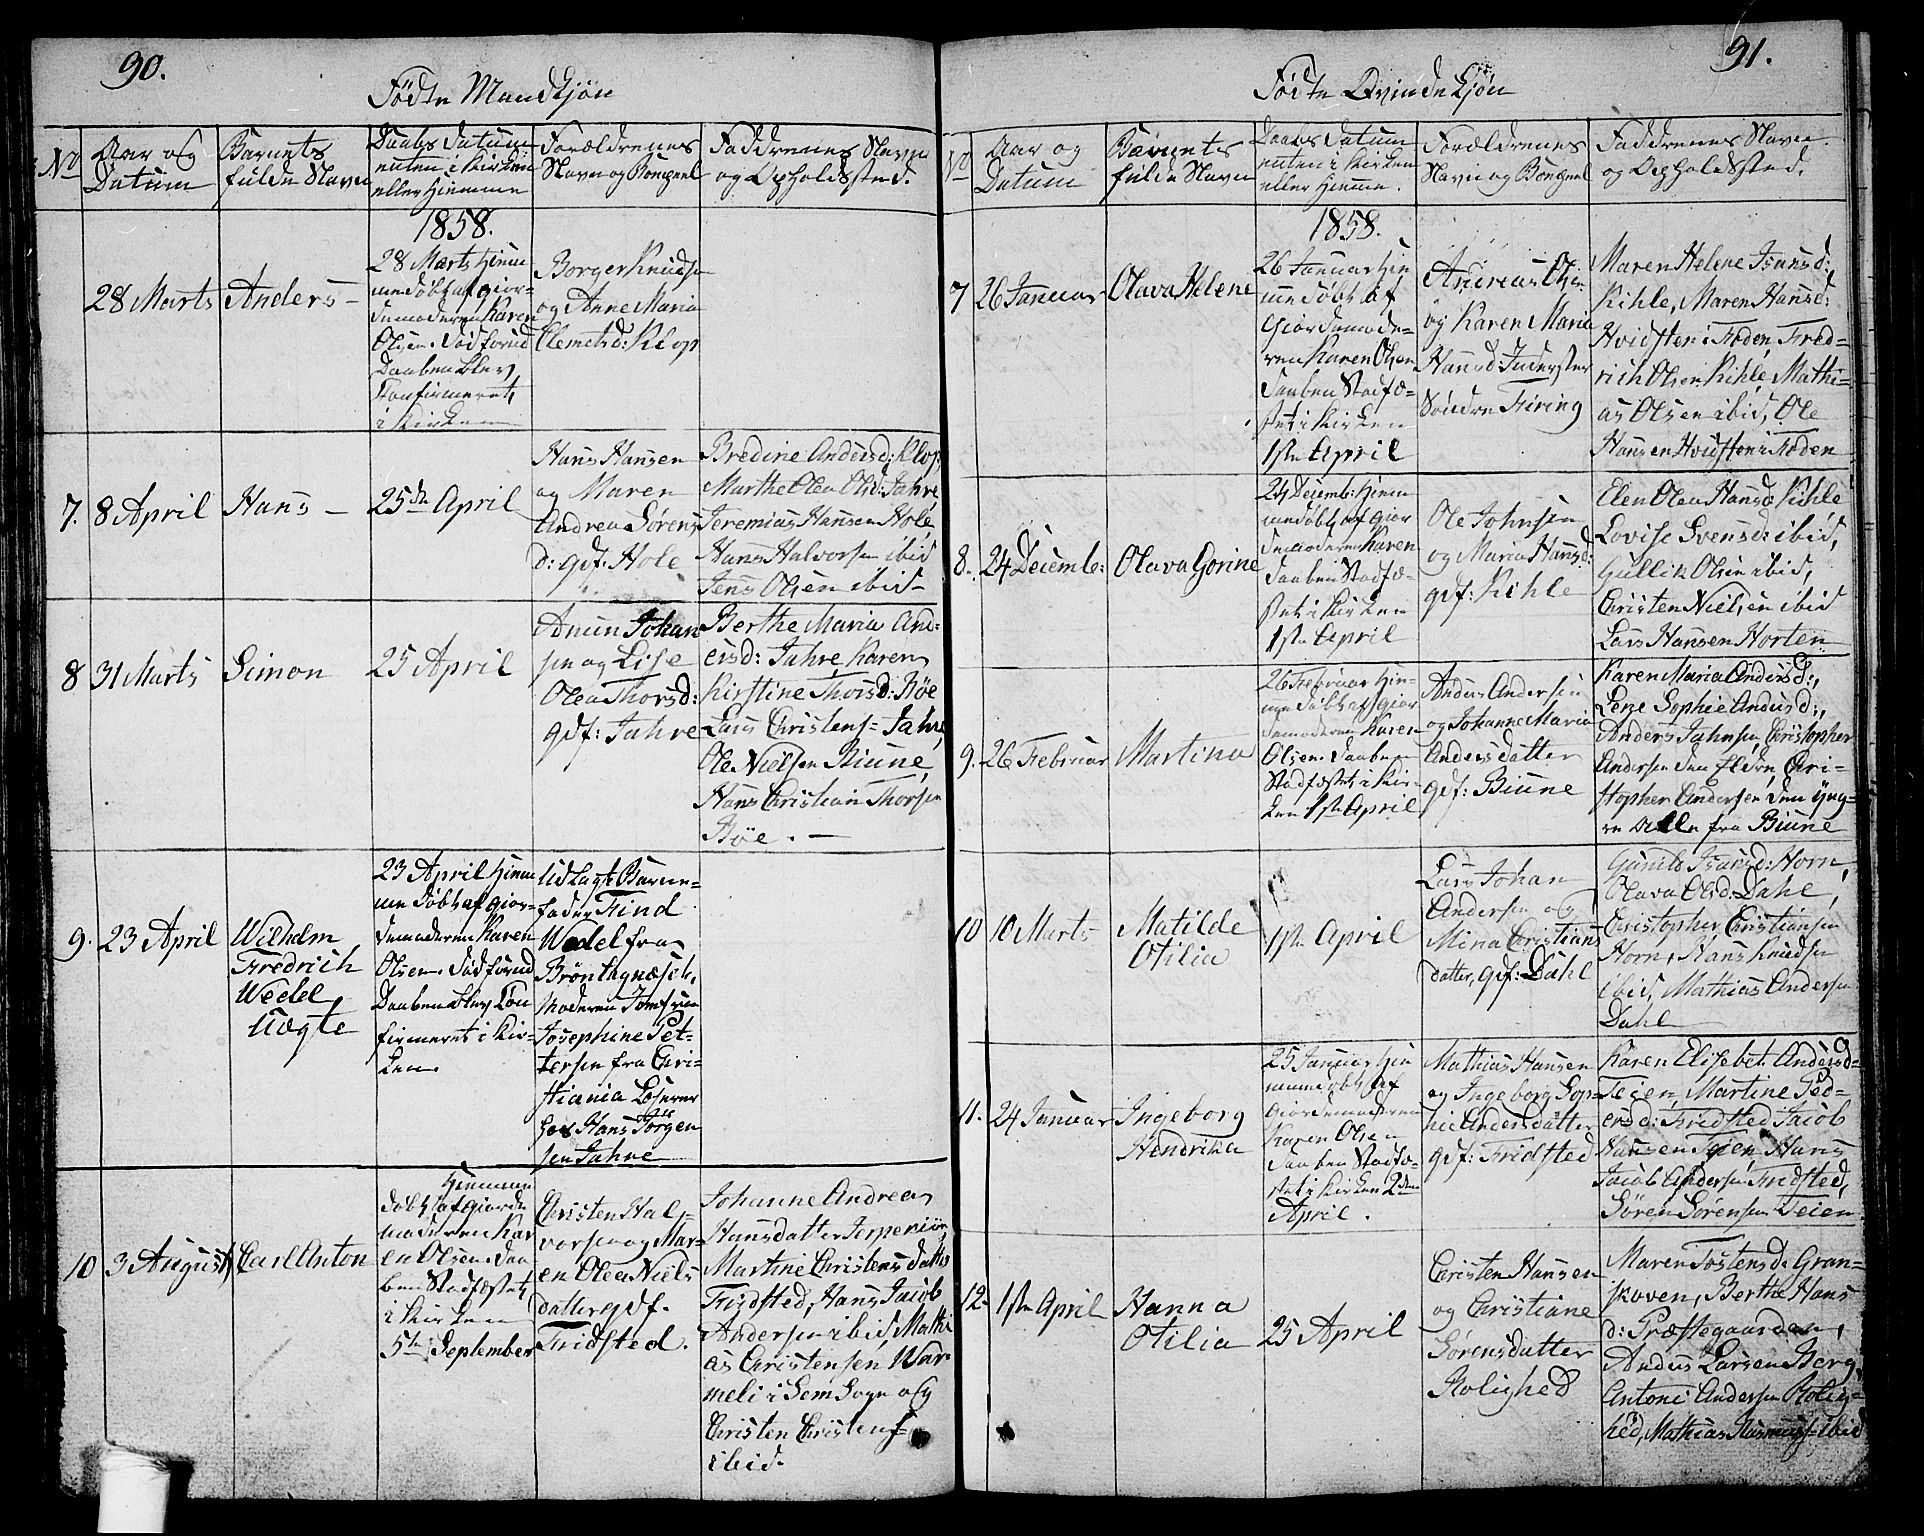 90.
Födte Mandkjön
No
Aar og
Datum
Barnets
fulde Navn
Daabs Datum
enten i Kirken
eller Hiemme
Forældrenes
Navn og Bongpel
Faddrenes Navn
og Opholdssted.
1858.
28 Marts
Anders -
28 Marts Hiem
medöbt af gior-
demoderen Karen
Olsen. Död forud
Daaben blev
Confirmeret
i Kirken
Borger Knudsen
og Anne Maria
Clemetsd: Klop
7.
8 April
Hans -
25de April
Hans Hansen
og Maren
Andrea Sørens
d: gdf. Hole
Bredine Andersd: Klop,
Marthe Olea Olsd: Jahre
Jeremias Hansen Hole,
Hans Halvorsen ibid
Jens Olsen ibid-
8
31 Marts
Simon
25 April
Anun Johan
sen og Lise
Olea Thorsd:
gdf: Jahre
Berthe Maria And-
ersd: Jahre Karen
Kirstine Thorsd: Röe
Lars Christens= Jahre,
Ole Nielsen Biune,
Hans Christian Thorsen
Röe. -
9.
23 April
Wilhelm
Fredrich
Wedel
Uægte
23 April Hiem
medöbt af gior-
demoderen Karen
Olsen. Död forud
Daaben blev Con
firmeret i Kir-
ken.
Udlagte Barne-
fader Find
Wedel fra
Bröntegnæset,
Moderen Jomfrue
Josephine Pet-
tersen fra Chri-
stiania Löserer
hos Hans Jörgen
sen Jahre
10
3 August
Carl Anton
Hiemme
döbt af giorde
moderen Kar
en Olsen. Daa
ben Stadfæstet
i Kirken
5te September
Christen Hal-
vorsen og Mar-
en Olea Niels
datter gdf.
Fridsted.
Johanne Andrea
Hansdatter Jerperiön,
Martine Christens datter
Fridsted, Hans Jacob
Andersen ibid, Mathi
as Christensen War-
meli i Sem Sogn og
Christen Christens=
ibid.
91.
Födte Qvindekjön
No
Aar og
Datum
Børnetes
fulde Navn
Daabs Datum
enten i Kirken
eller Hiemme.
Forældrenes
Navn og Bongpel
Faddrenes Navn.
og Opholdssted.
1858.
7
26 Januar
Olava Helene
26 Januar Hie
me döbt af
Giordemode-
ren Karen Olsen
Daaben Stadfæ-
stet i Kirken
1ste April
Andreas Olsen
og Karen Maria
Hansd Inderster
Söndre Firing
Maren Helene Isaksd:
Kihle, Maren Hansd:
Hvidsten i Foden, Fred-
rich Olsen Kihle, Mathi-
as Olsen ibid, Ole
Hansen Hvidsten i Foden
8.
24 Deiembe:
Olava Gorine
24 Decemb: Hiem
medöbt af gior
demoderen Karen
Daaben Stadfæ-
stet i Kirken
1ste April
Ole Johnsen
og Maria Hansd:
gdf: Kihle
Elen Olea Hansd: Kihle
Lovise Svensd: ibid,
Gullik Olsen ibid,
Christen Nielsen ibid
Lars Hansen Horten
9.
26 Februar
Martina
26 Februar Hie-
me döbt af gior
demoderen Karen
Olsen. Daaben
Stadfæstet i Kir-
ken 1ste April
Anders Andersen
og Johanne Maria
Andersdatter
gdf: Biune
Karen Maria Andersd:,
Lene Sophie Andersd:,
Anders Jahnsen, Christopher
Andersen den Eldre, Chri-
stopher Andersen den yng-
re alle fra Biune
10
10 Marts
Matilde
Otilia
1ste April
Lars Johan
Andersen og
Mina Christians
datter, gdf: Dahl
Gunild Isaksd: Horn,
Olava Olsd: Dahl,
Christopher Christiansen
Horn, Hans Knudsen
ibid, Mathias Andersen
Dahl
11.
24 Januar
Ingeborg
Hendrika
25 Januar Hie
mmedöbt af
Giordemoderen
Karen Olsen
Daaben Stadfæ-
stet i Kirken 2den
April.
Mathias Hansen
og Ingeborg Sop-
hie Andersdatter
gdf: Fridsted
Karen Elisebet Andersd=
Teien, Martine Ped-
ersd: Fridsted Jacob
Hansen Teien, Hans
Jacob Andersen Fridsted,
Sören Sörensen Teien
12.
1ste April
Hanna
Otilia
25 April
Christen Hansen
og Christiane
Sørensdatter
Rolighed
Maren Tostensd: Gran-
skoven, Berthe Hans
d: Præstegaarden,
Anders Larsen Berg
Antoni Andersen Rolig-
hed, Mathias Rasmuss= ibid